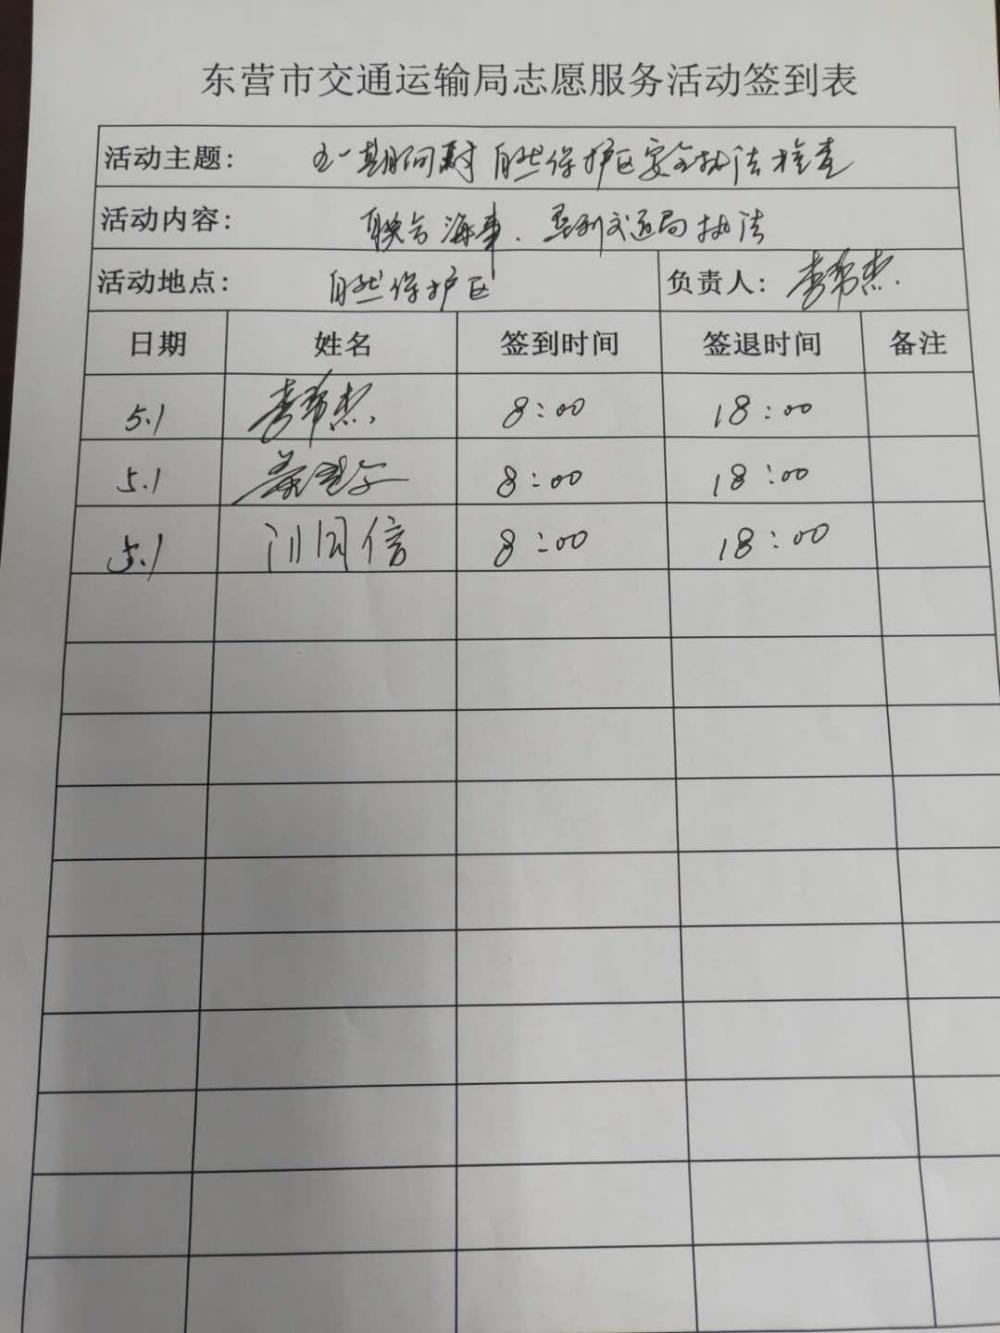 东营市交通运输局志愿服务活动签到表
活动主题: 五一期间对自然保护区安全执法检查
活动内容: 联合海事、垦利交通局执法
活动地点: 自然保护区 负责人: 李希杰
日期 姓名 签到时间 签退时间 备注
5.1 李希杰 8:00 18:00
5.1 8:00 18:00
5.1 信 8:00 18:00